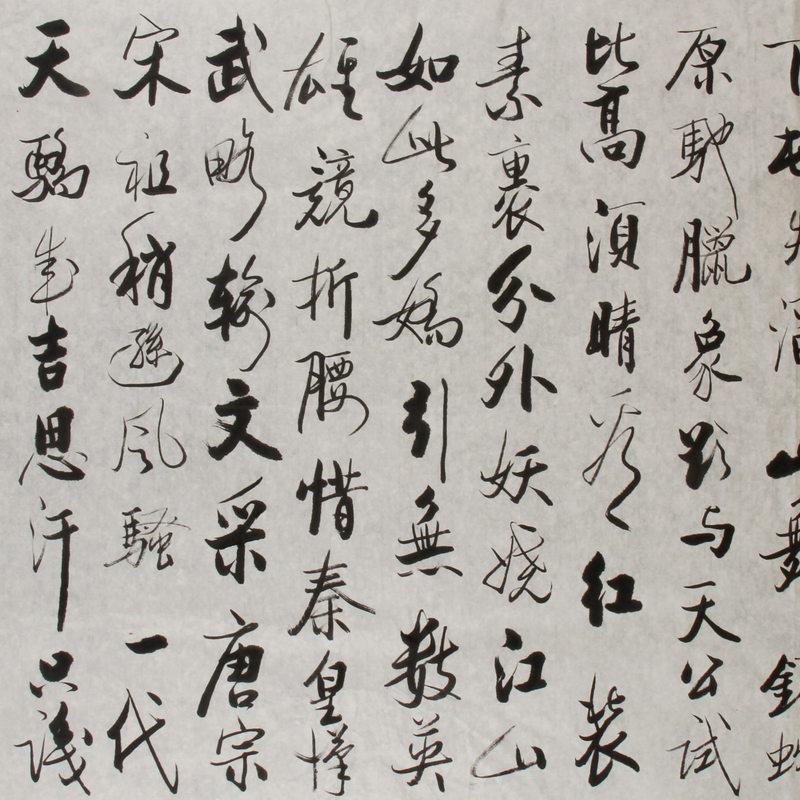 下頓失滔山舞銀蛇
原馳臘象欲与天公試
比高須晴看红裝
素裹分外妖嬈江山
如此多嬌引無數英
雄競折腰惜秦皇漢
武略輸文采唐宗
宋祖稍遜風騷一代
天驕成吉思汗只識